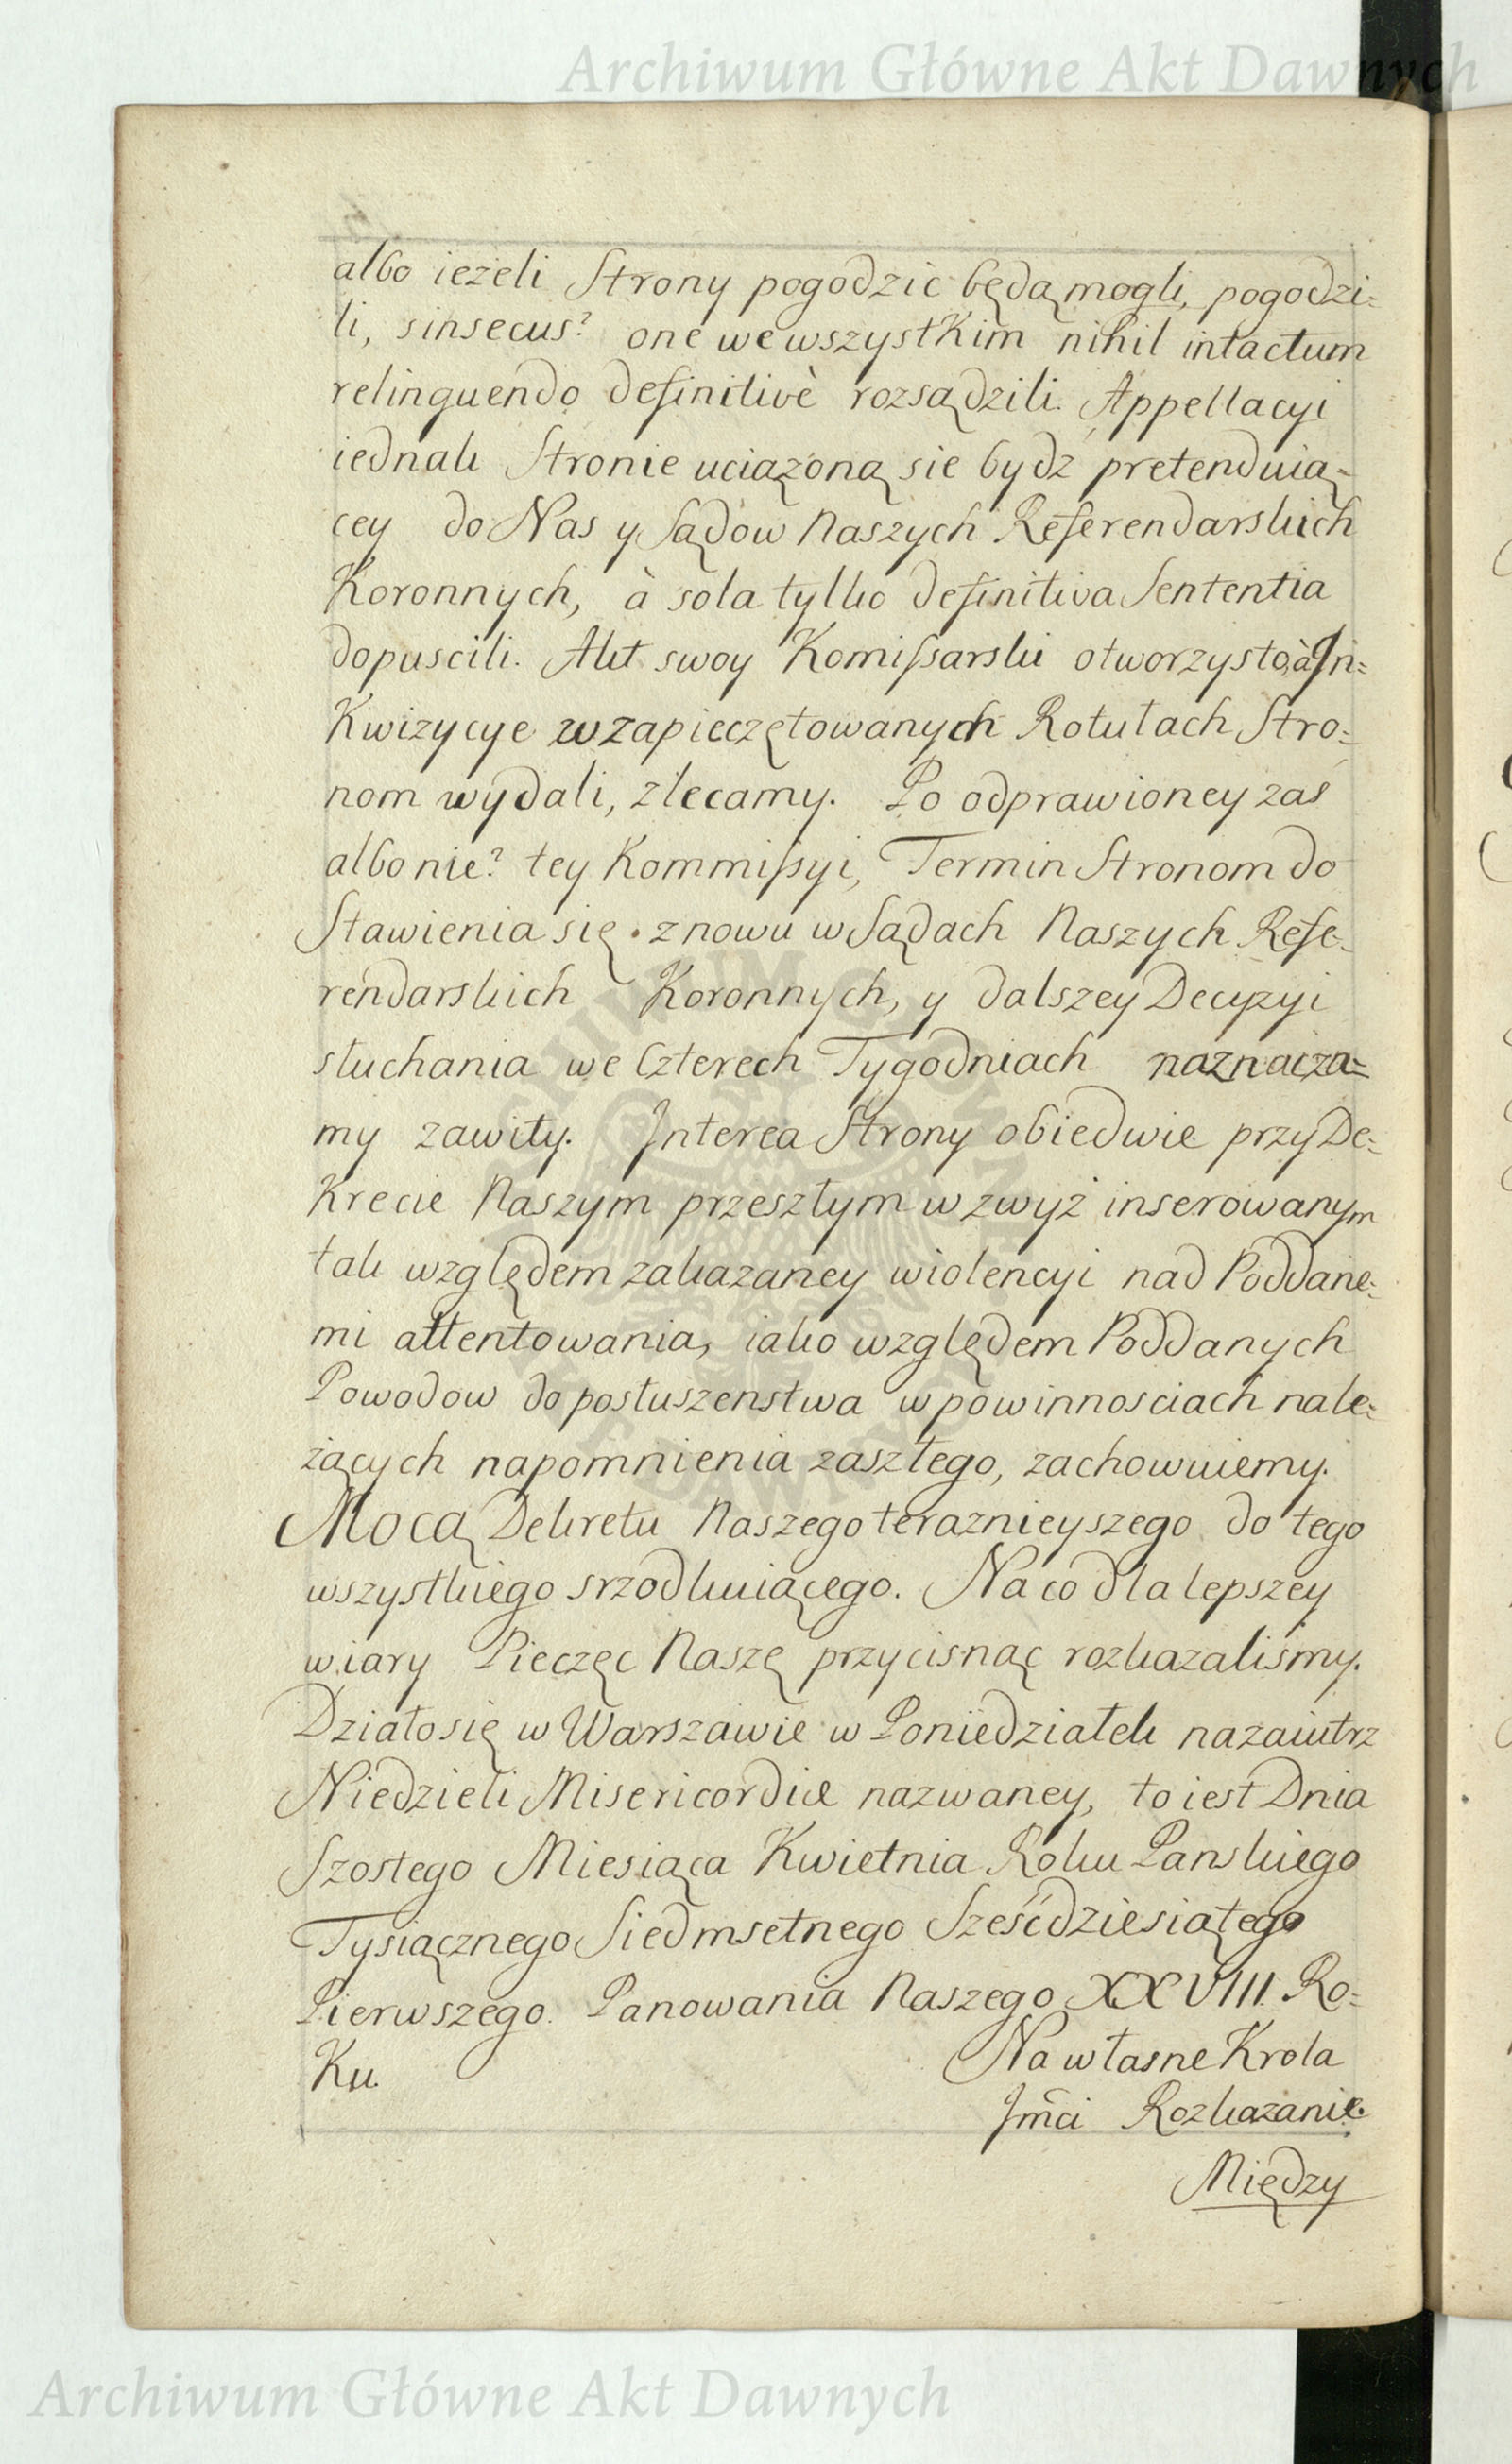 Archiwum Główne Akt Dawnych
albo ieżeli Strony pogodzic będą mogli, pogodzi=
li, sinsecus? one we wszystkim nihil intactum
relinquendo definitivè rozsądzili. Appellacyi
iednak Stronie uciązoną się bydź pretenduią=
cey do Nas y Sądow Naszych Referendarskich
Koronnych, à sola tylko definitiva Sententia
dopuscili. Akt swoy Komissarski otworzysto, à In=
kwizycye w zapieczętowanych Rotułach Stro=
nom wydali, zlecamy. Po odprawioney zas
albo nie? tey Kommissyi, Termin Stronom do
Stawienia się znowu w Sądach Naszych Refe=
rendarskich Koronnych, y dalszey Decyzyi
słuchania we Czterech Tygodniach naznacza=
my zawity. Interea Strony obiedwie przy De=
krecie Naszym przeszłym wzwyż inserowanym
tak względem zakazaney wiolencyi nad Poddane=
mi attentowania, iako względem Poddanych
Powodow do posłuszenstwa w powinnosciach nale=
żących napomnienia zaszłego, zachowuiemy.
Mocą Dekretu Naszego teraznieyszego do tego
wszystkiego srzodkuiącego. Na co dla lepszey
wiary Pieczęc Naszę przycisnąc rozkazalismy.
Działo się w Warszawie w Poniedziałek nazaiutrz
Niedzieli Misericordiæ nazwaney, to iest Dnia
Szostego Miesiąca Kwietnia Roku Panskiego
Tysiącznego Siedmsetnego Sześćdziesiątego
Pierwszego. Panowania Naszego XXVIII. Ro=
ku.
Na własne Krola
Jmći Rozkazanie.
Między
Archiwum Główne Akt Dawnych